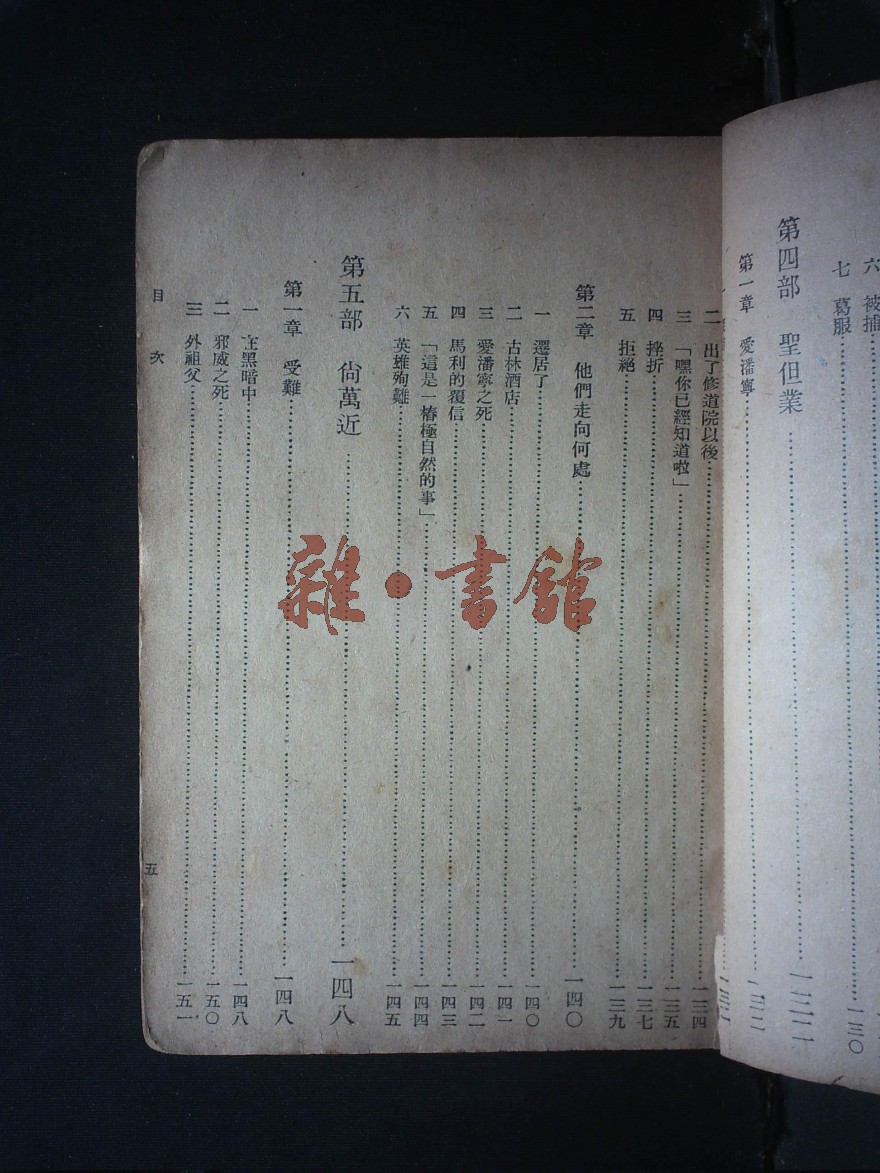 六 被捕
七 葛服……一三〇
第四部 聖但業……一三二
第一章 愛潘寧……一三二
二 出了修道院以後……一三四
三 「嘿你已經知道啦」……一三五
四 挫折……一三七
五 拒絕……一三九
第二章 他們走向何處……一四〇
一 遷居了……一四〇
二 古林酒店……一四一
三 愛潘寧之死……一四二
四 馬利的覆信……一四三
五 「這是一樁極自然的事」……一四四
六 英雄殉難……一四五
第五部 尙萬近……一四八
第一章 受難……一四八
一 在黑暗中……一四八
二 邪威之死……一五〇
三 外祖父……一五一
目次
五
雜·書館